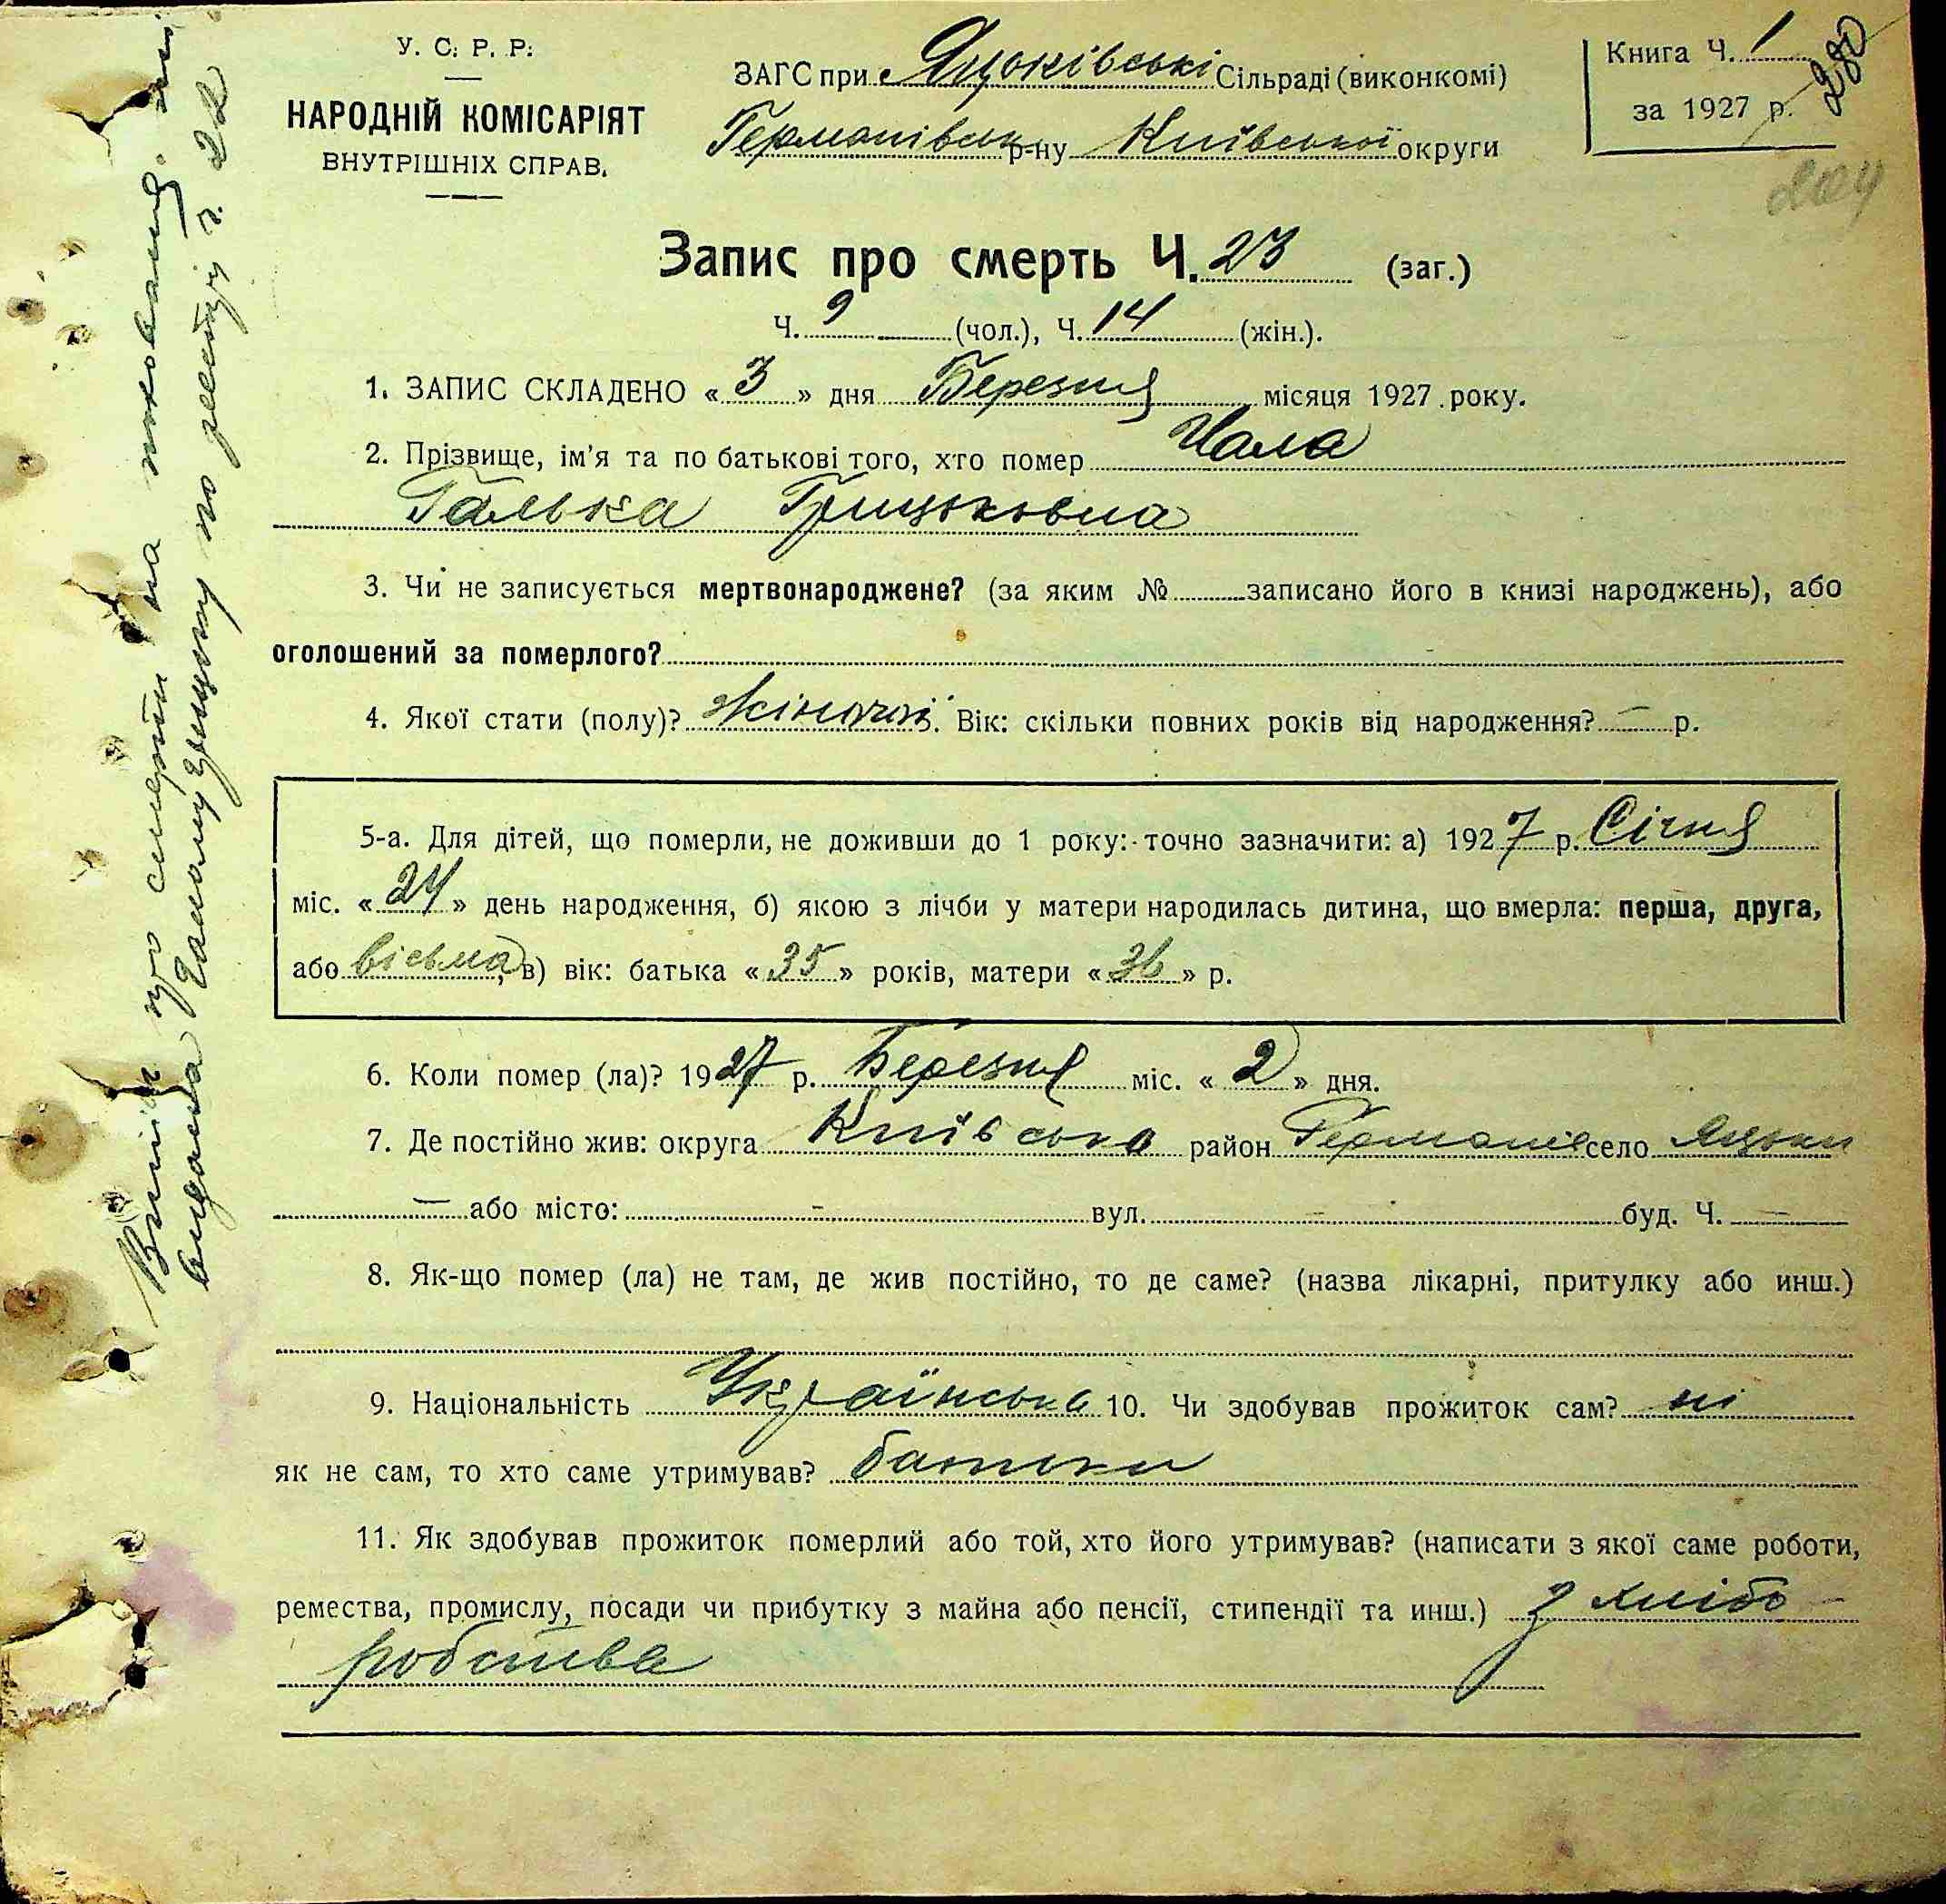 У. С. Р. Р.
НАРОДНІЙ КОМІСАРІЯТ
ВНУТРІШНІХ СПРАВ.
ЗАГС при Яцьківські Сільраді (виконкомі)
Германівськ р-ну Київської округи
Книга Ч. 1
за 1927 р.
280
Запис про смерть Ч. 23 (заг.)
Ч. 9 (чол.), Ч. 14 (жін.).
1. ЗАПИС СКЛАДЕНО « 3 » дня Березня місяця 1927 року.
2. Прізвище, ім'я та по батькові того, хто помер Чала
Галька Грицьковна
3. Чи не записується мертвонароджене? (за яким № записано його в книзі народжень), або
оголошений за померлого?
4. Якої стати (полу)? жіночої. Вік: скільки повних років від народження? — р.
5-а. Для дітей, що померли, не доживши до 1 року: точно зазначити: а) 1927 р. Січня
міс. « 24 » день народження, б) якою з лічби у матери народилась дитина, що вмерла: перша, друга,
або вісьма, в) вік: батька « 35 » років, матери « 36 » р.
6. Коли помер (ла)? 1927 р. Березня міс. « 2 » дня.
7. Де постійно жив: округа Київська район Германів село Яцьки
— або місто: - вул. - буд. Ч. —
8. Як-що помер (ла) не там, де жив постійно, то де саме? (назва лікарні, притулку або инш.)
9. Національність Українська 10. Чи здобував прожиток сам? ні
як не сам, то хто саме утримував? батьки
11. Як здобував прожиток померлий або той, хто його утримував? (написати з якої саме роботи,
ремества, промислу, посади чи прибутку з майна або пенсії, стипендії та инш.) з хлібо-
робства
Витяг про смерть на
видана Чалому Грицьку по реєстру ч. 22